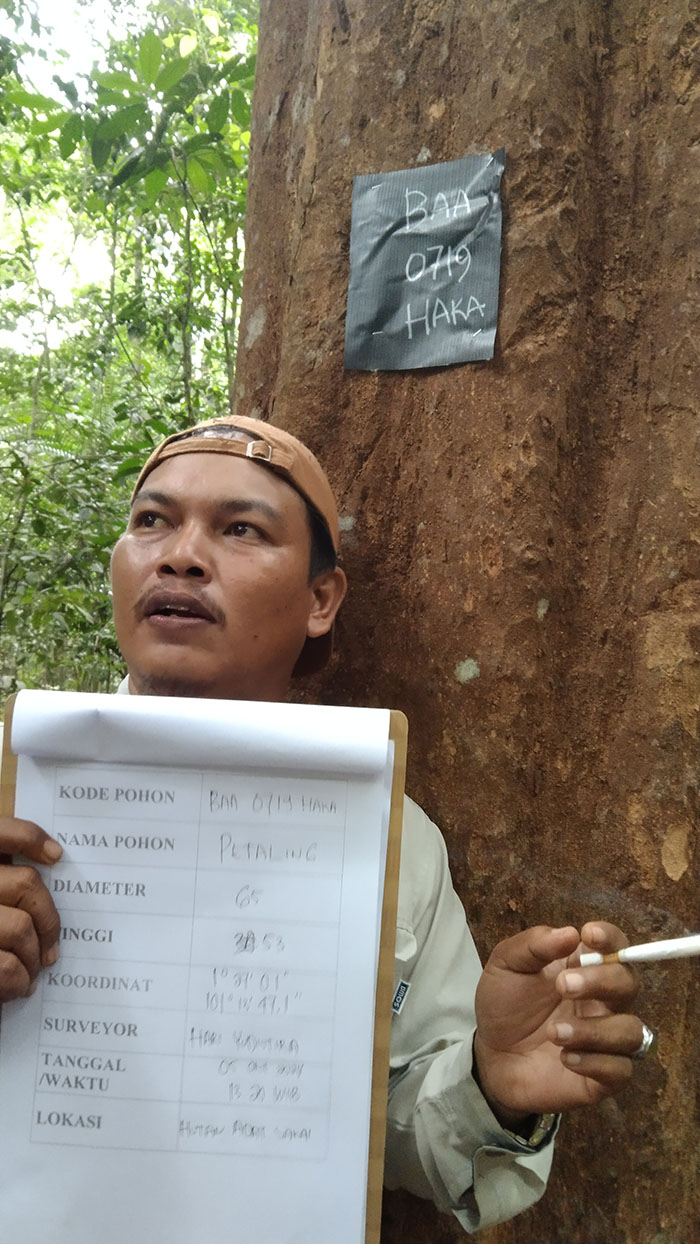 BAA
0719
HAKA
KODE POHON BAA 0719 HAKA
NAMA POHON PETALING
DIAMETER 65
TINGGI 53
KOORDINAT 1° 21' 01"
101° 13' 47,1"
SURVEYOR HARI YUDISTIRA
TANGGAL 05 2024
/WAKTU 13 20 WIB
LOKASI HUTAN ADAT SAKAI